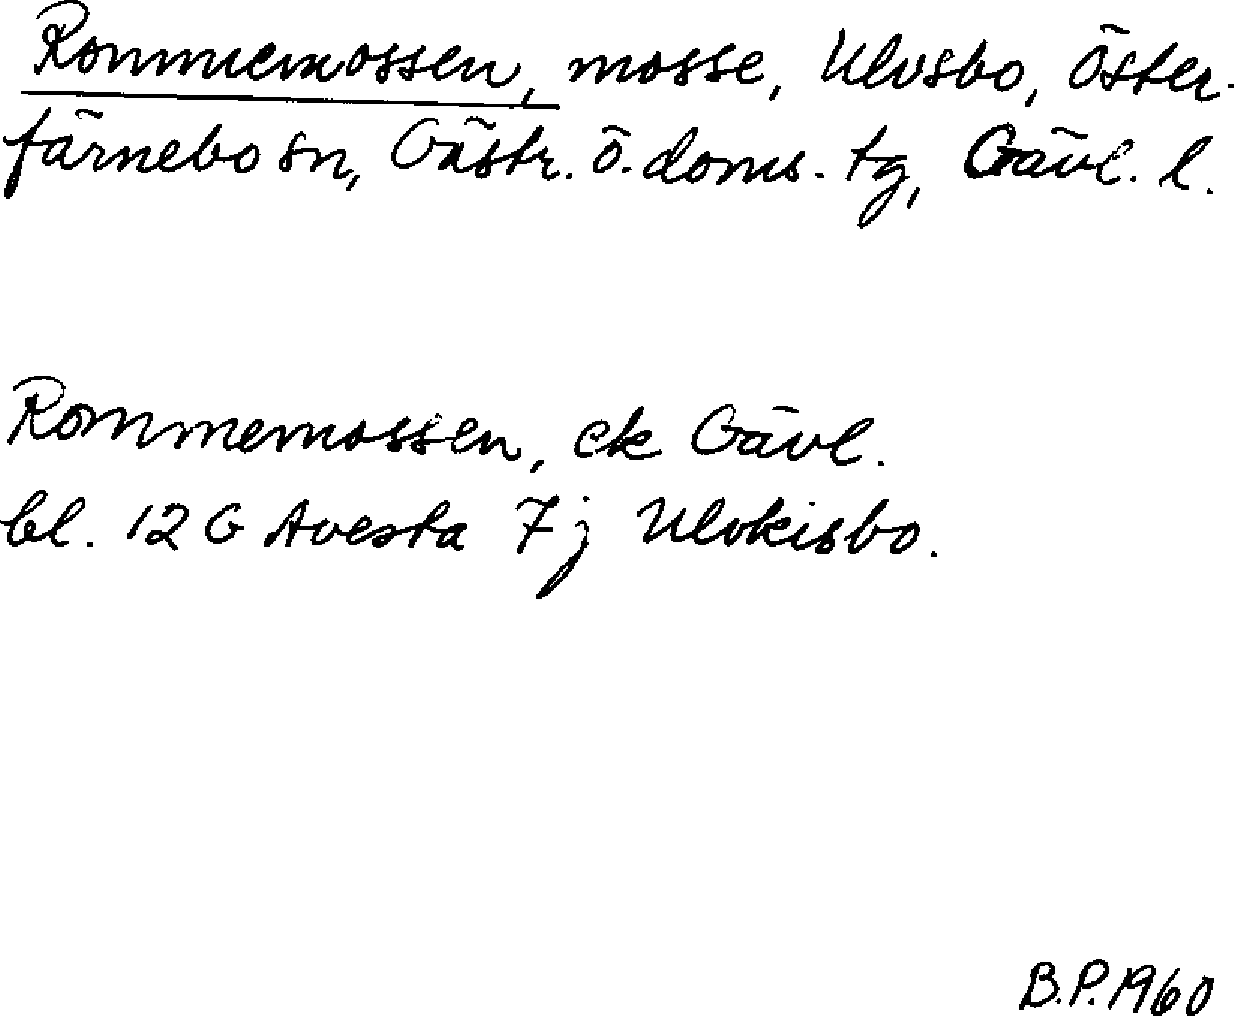 Rommemossen, mosse, Ulvsbo, Öster-
färnebo sn, Gästr. ö. doms. tg, Gävl. l.
Rommemossen, ek Gävl.
bl. 12 G Avesta 7j Ulvkisbo.
B.P. 1960